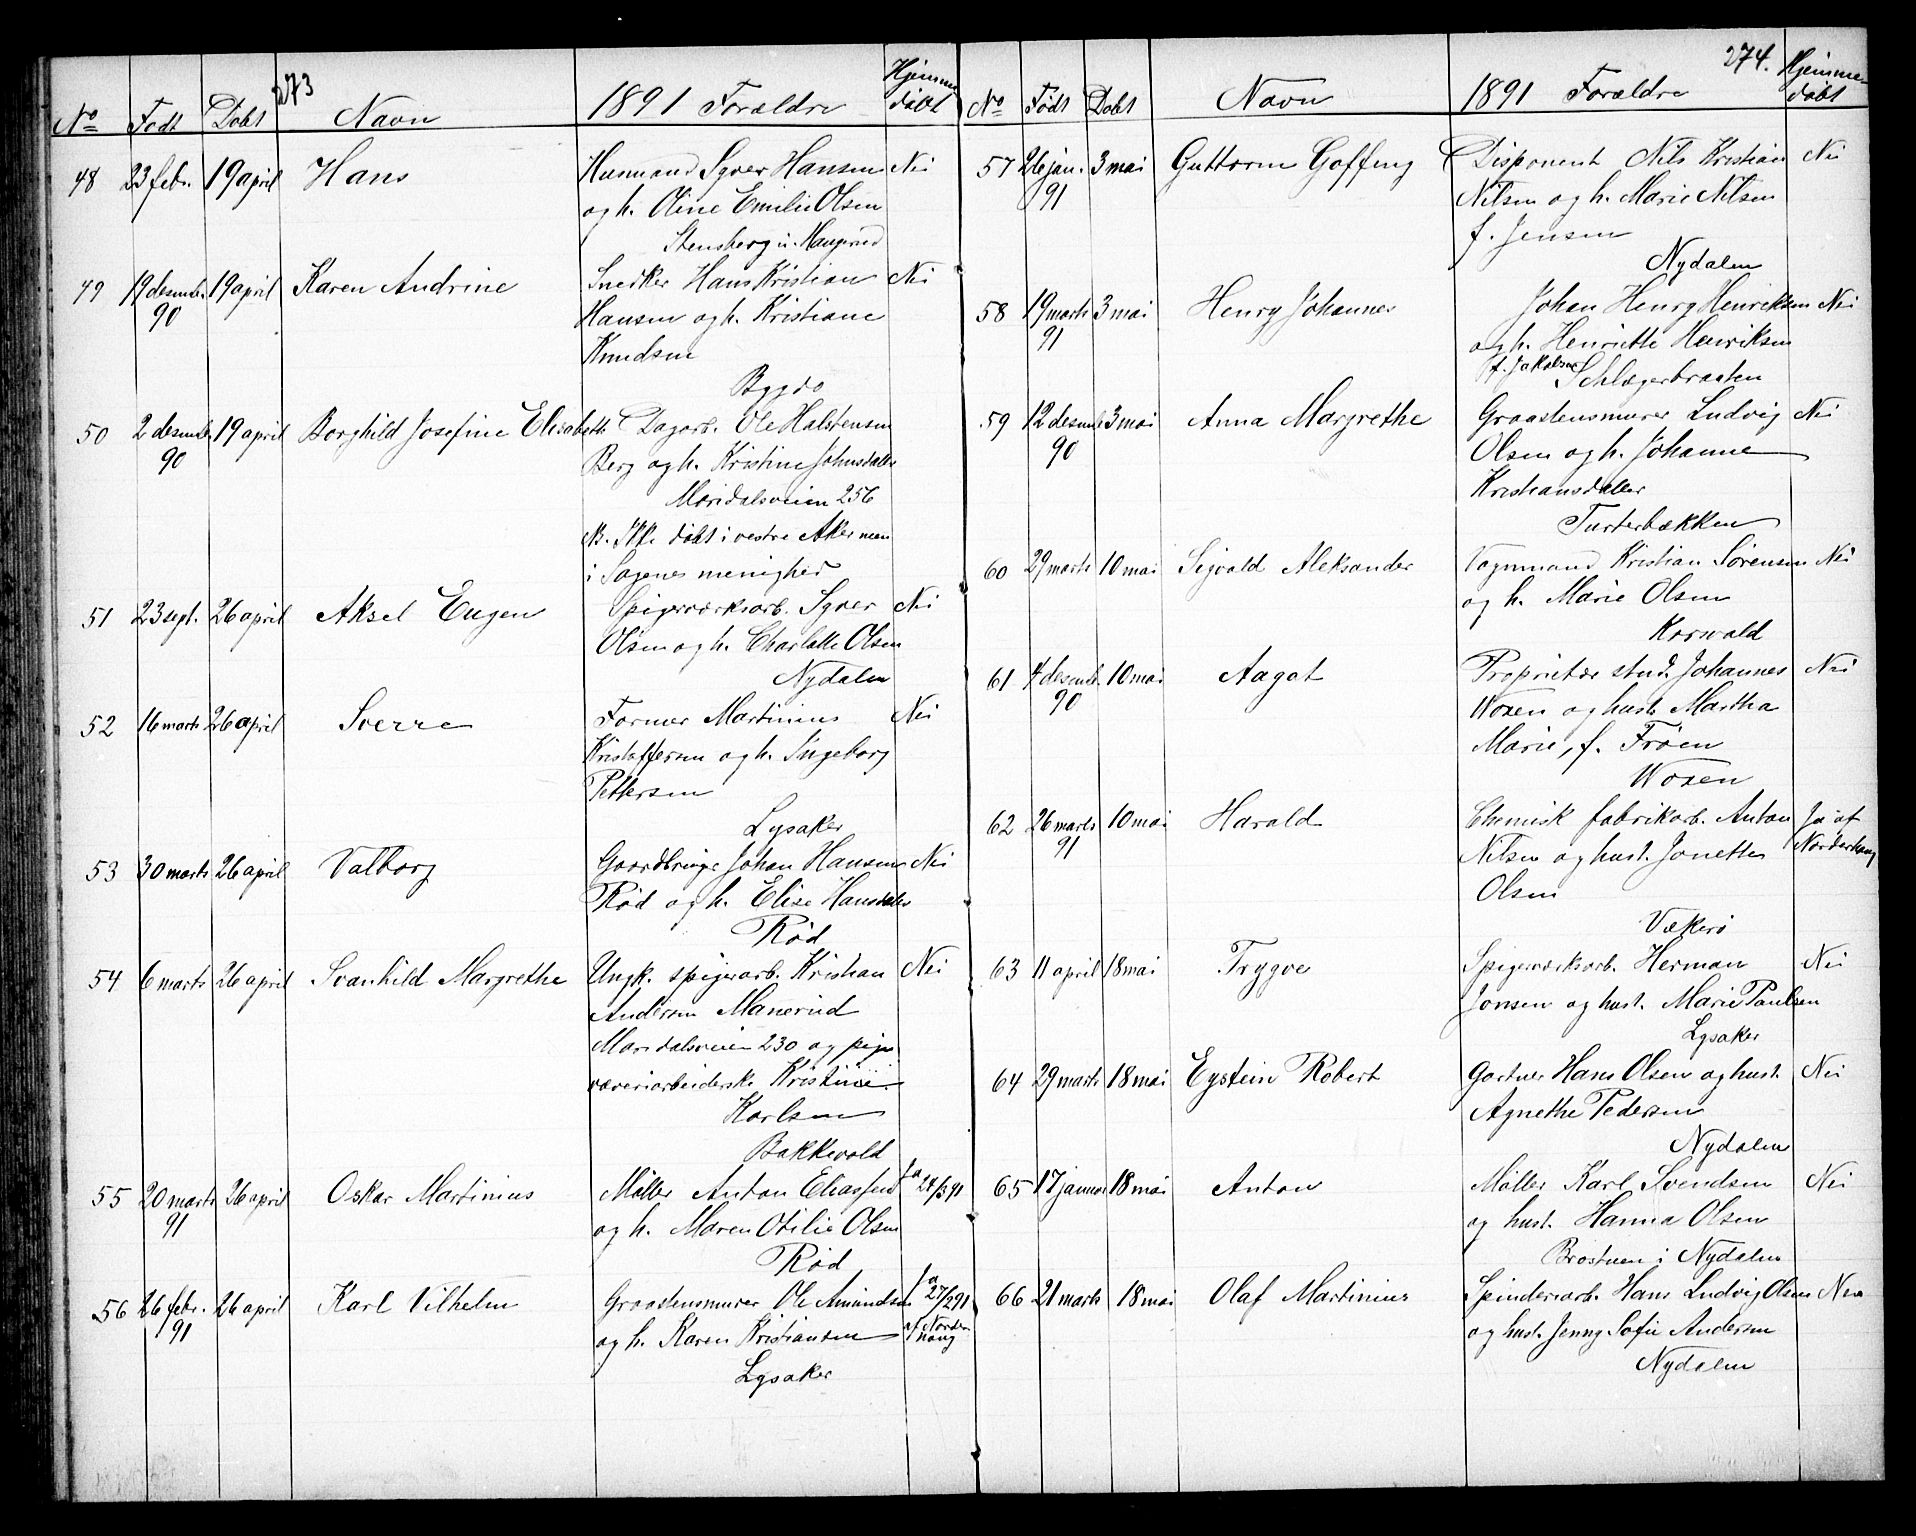 273
No Født Døbt Navn 1891 Forældre Hjemmedøbt
48 23 febr. 19 april Hans Husmand Syver Hansen Nei
og h. Oline Emilie Olsen
Stensberg u. Haugerud
49 19 desember 19 april Karen Andrine Snedker Hans Kristian Nei
90 Hansen og h. Kristiane
Knudsen
Bygdø
50 2 desember 19 april Borghild Josefine Elisabeth Dagarb. Ole Halstensen
90 Berg og h. Kristine Johnsdatter
Maridalsveien 256
NB. Ikke døbt i vestre Aker men
i Sagenes menighed
51 23 sept. 26 april Aksel Eugen Spigerværksarb. Syver Nei
Olsen og h. Charlotte Olsen
Nydalen
52 16 marts 26 april Sverre Former Martinius Nei
Kristoffersen og h. Ingeborg
Pettersen
Lysaker
53 30 marts 26 april Valborg Gaardbruger Johan Hansen Nei
Rød og h. Elise Hansdatter
Rød
54 6 marts 26 april Svanhild Margrethe Ungk. spigerarb. Kristian Nei
Andersen Manerud
Maridalsveien 230 og pige
væveriarbeiderske Kristine
Karlsen
Bakkevold
55 20 marts 26 april Oskar Martinius Møller Anton Eliassen Ja 24/3 91
91 og h. Maren Otilie Olsen
Rød
56 26 febr. 26 april Karl Vilhelm Graastensmurer Ole Amundsen Ja 27/2 91
91 og h. Karen Kristiansen af Norderhaug
Lysaker
274.
No Født Døbt Navn 1891 Forældre Hjemmedøbt
57 26 jan. 3 mai Guttorm Goffeng Disponent Nils Kristian Nei
91 Nilsen og h. Marie Nilsen
f. Jensen
Nydalen
58 19 marts 3 mai Henry Johannes Johan Henry Henriksen Nei
91 og h. Henriette Henriksen
f. Jakobsen Schlægerbraaten
59 12 desemb. 3 mai Anna Margrethe Graastensmurer Ludvig Nei
90 Olsen og h. Johanne
Kristiansdatter
Turterbækken
60 29 marts 10 mai Sigvald Aleksander Vognmand Kristian Sørensen Nei
og h. Marie Olsen
Korsvold
61 4 desemb. 10 mai Aagot Proprietær stud. Johannes Nei
90 Woxen og hust. Martha
Marie, f. Frøen
Woxen
62 26 marts 10 mai Harald Chemisk fabrikarb. Anton Ja af
91 Nilsen og hust. Jonette Norderhaug
Olsen
Vækerø
63 11 april 18 mai Trygve Spigerværksarb. Herman Nei
Jonsen og hust. Marie Paulsen
Lysaker
64 29 marts 18 mai Eystein Robert Gartner Hans Olsen og hust. Nei
Agnethe Pedersen
Nydalen
65 17 januar 18 mai Anton Møller Karl Svendsen Nei
og hust. Hanna Olsen
Brostuen i Nydalen
66 21 marts 18 mai Olaf Martinius Spinderiarb. Hans Ludvig Olsen Nei
og hust. Jenny Sofie Andersen
Nydalen